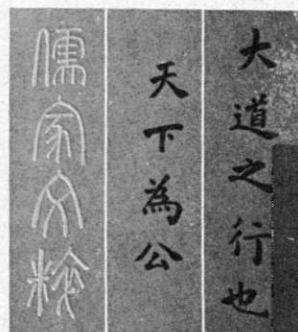 大道之行也
天下為公
儒家文粹